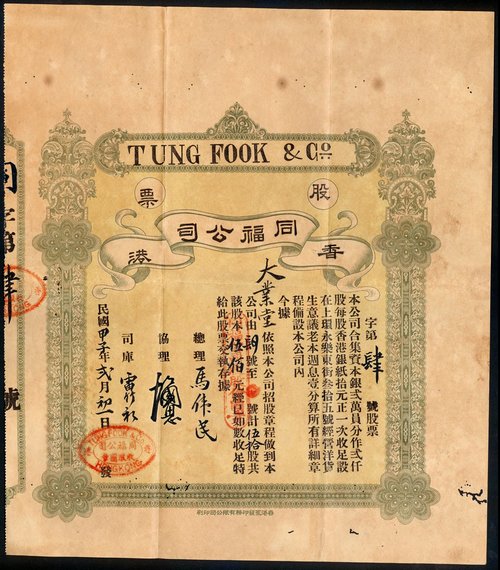 TUNG FOOK & Co
股票
同福公司
香港
字第肆號股票
本公司合集資本銀弍萬員分作弍仟
股每股香港銀紙拾元正一次收足設
在上環永樂東街叁拾五號經營洋貨
生意議老本週息壹分算所有詳細章
程備設本公司內
今據
大業堂依照本公司招股章程做到本
公司由 號至 號計伍拾股共
該股本伍佰元經已如數收足特
給此股票交執存據
總理 馬偉民
協理
司庫
民國甲子年弍月初一日 發
TUNG FOOK & CO.
同福公司
HONG KONG
同
字第
肆
號